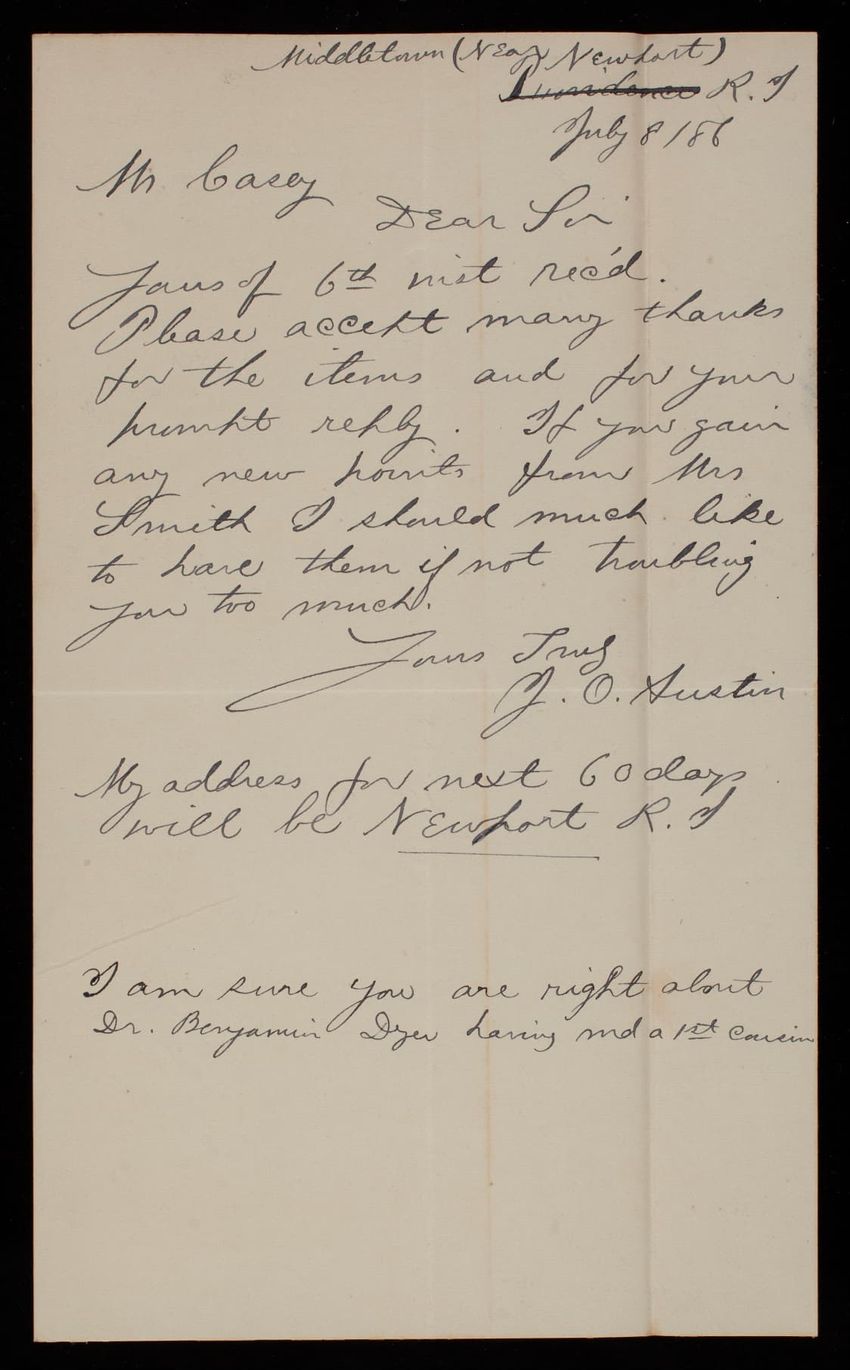 Middletown (Near Newport)
Providence R. I
July 8/86
Mr Casey
Dear Sir
Yours of 6th inst rec'd.
Please accept many thanks
for the items and for your
prompt reply. If you gain
any new points from Mrs
Smith I should much like
to have them if not troubling
you too much.
Yours Truly
J. O. Austin
My address for next 60 days
will be Newport R. I
I am sure you are right about
Dr. Benjamin Dyer having md a 1st cousin